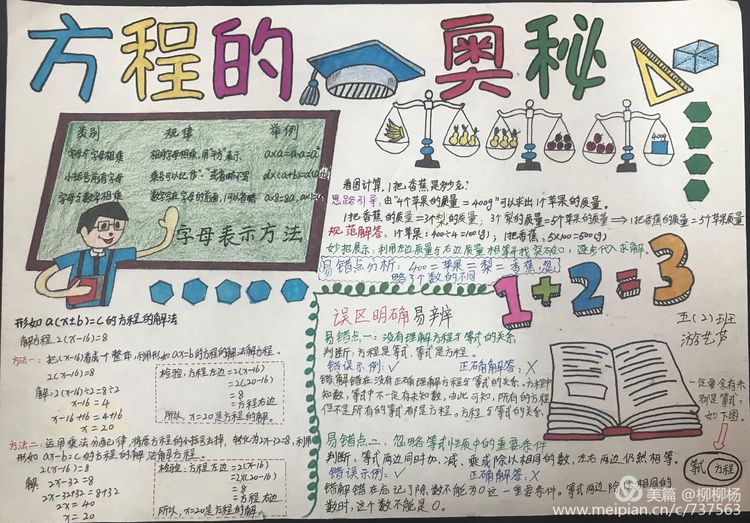 方程的奥秘
类别 规律 举例
字母与字母相乘 相同字母相乘,用"平方"表示 a×a=a·a=a²
小括号前有字母 乘号可以记作"·"或省略不写
字母与数字相乘 数字写在字母的前面,可以省略
字母表示方法
400g
看图计算,1把香蕉是多少克?
思路引导:由"4个苹果的质量=400g"可以求出1个苹果的质量。
1把香蕉的质量=3个梨的质量;3个梨的质量=5个苹果的质量⇒1把香蕉的质量=5个苹果质量
规范解答:1个苹果:400÷4=100(g);1把香蕉:5×100=500(g)
妙招展示:利用左边质量与右边质量相等并找突破口,逐步代入求解。
易错点分析:400=苹果=梨=香蕉,忽
略3个数的不同
1+2=3
形如a(x±b)=c的方程的解法
解方程2(x-16)=8
方法一:把(x-16)看成一个整体,利用形如ax=b的方程的解法解方程。
2(x-16)=8
解:2(x-16)÷2=8÷2
x-16=4
x-16+16=4+16
x=20
检验:方程左边=2(x-16)
=2(20-16)
=8
=方程右边
所以,x=20是方程的解。
方法二:运用乘法分配律,将原方程的小括号去掉,转化为2x-32=8,利用
形如ax-b=c的方程的解法解方程。
2(x-16)=8
解 2x-32=8
2x-32+32=8+32
2x=40
x=20
检验:方程左边=2(x-16)
=2×(20-16)
=8
=方程右边
所以,x=20是方程的解
误区明确易辨
易错点一:没有理解方程与等式的关系
判断:方程是等式,等式是方程。
错误示例:√ 正确解答:X
错解错在没有正确理解方程与等式的关系,方程中
知数,等式中不一定有未知数,由此可知,所有的方程
但不是所有的等式都是方程。方程与等式的关系
易错点二:忽略等式性质中的重要条件
判断:等式两边同时加、减、乘或除以相同的数,左右两边仍然相等。
错误示例:√ 正确解答:X
错解错在忘记了除数不能为0这一重要条件。等式两边除以相同的
数时,这个数不能是0。
五(2)班
游艺芦
一定要含有未
知
都是等式,
如下图。
等式 方程
美篇@柳柳杨
www.meipian.cn/c/737563